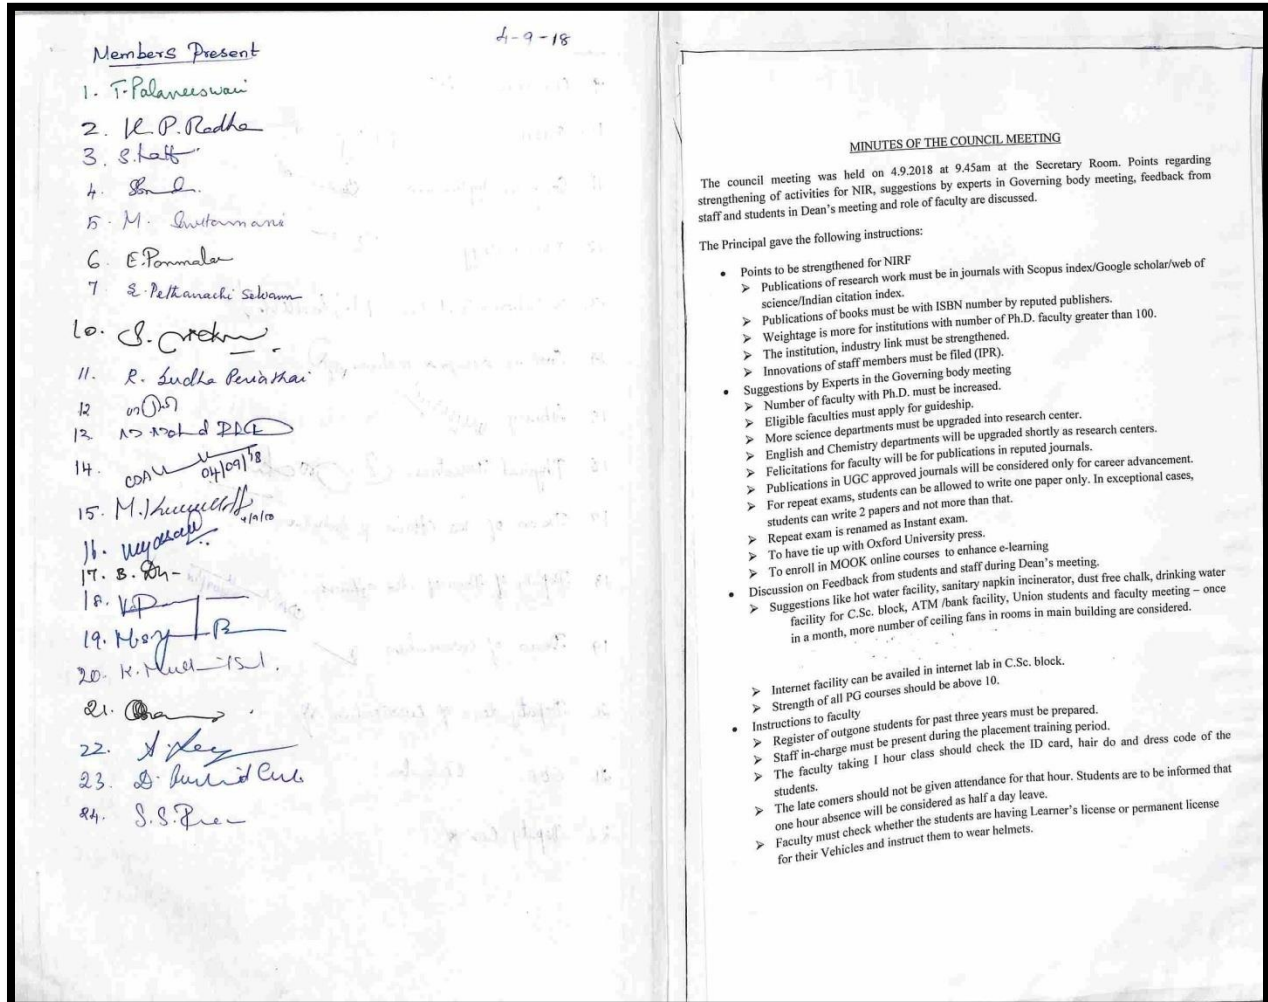 4-9-18
Members Present
1. T. Palaneeswari
2. K. P. Radha
3.
4.
5. M.
6. E. Ponmalar
7 S. Pethanachi Selvam
10. S.
11. R. Sudha Periathai
12
13.
14. 04/09/18
15. M. 4/9/18
16.
17. B.
18.
19.
20. K.
21.
22. A.
23. D.
24. S.S.
MINUTES OF THE COUNCIL MEETING
The council meeting was held on 4.9.2018 at 9.45am at the Secretary Room. Points regarding
strengthening of activities for NIR, suggestions by experts in Governing body meeting, feedback from
staff and students in Dean's meeting and role of faculty are discussed.
The Principal gave the following instructions:
• Points to be strengthened for NIRF
➢ Publications of research work must be in journals with Scopus index/Google scholar/web of
science/Indian citation index.
➢ Publications of books must be with ISBN number by reputed publishers.
➢ Weightage is more for institutions with number of Ph.D. faculty greater than 100.
➢ The institution, industry link must be strengthened.
➢ Innovations of staff members must be filed (IPR).
• Suggestions by Experts in the Governing body meeting
➢ Number of faculty with Ph.D. must be increased.
➢ Eligible faculties must apply for guideship.
➢ More science departments must be upgraded into research center.
➢ English and Chemistry departments will be upgraded shortly as research centers.
➢ Felicitations for faculty will be for publications in reputed journals.
➢ Publications in UGC approved journals will be considered only for career advancement.
➢ For repeat exams, students can be allowed to write one paper only. In exceptional cases,
students can write 2 papers and not more than that.
➢ Repeat exam is renamed as Instant exam.
➢ To have tie up with Oxford University press.
➢ To enroll in MOOK online courses to enhance e-learning
• Discussion on Feedback from students and staff during Dean's meeting.
➢ Suggestions like hot water facility, sanitary napkin incinerator, dust free chalk, drinking water
facility for C.Sc. block, ATM /bank facility, Union students and faculty meeting – once
in a month, more number of ceiling fans in rooms in main building are considered.
➢ Internet facility can be availed in internet lab in C.Sc. block.
➢ Strength of all PG courses should be above 10.
• Instructions to faculty
➢ Register of outgone students for past three years must be prepared.
➢ Staff in-charge must be present during the placement training period.
➢ The faculty taking I hour class should check the ID card, hair do and dress code of the
students.
➢ The late comers should not be given attendance for that hour. Students are to be informed that
one hour absence will be considered as half a day leave.
➢ Faculty must check whether the students are having Learner's license or permanent license
for their Vehicles and instruct them to wear helmets.